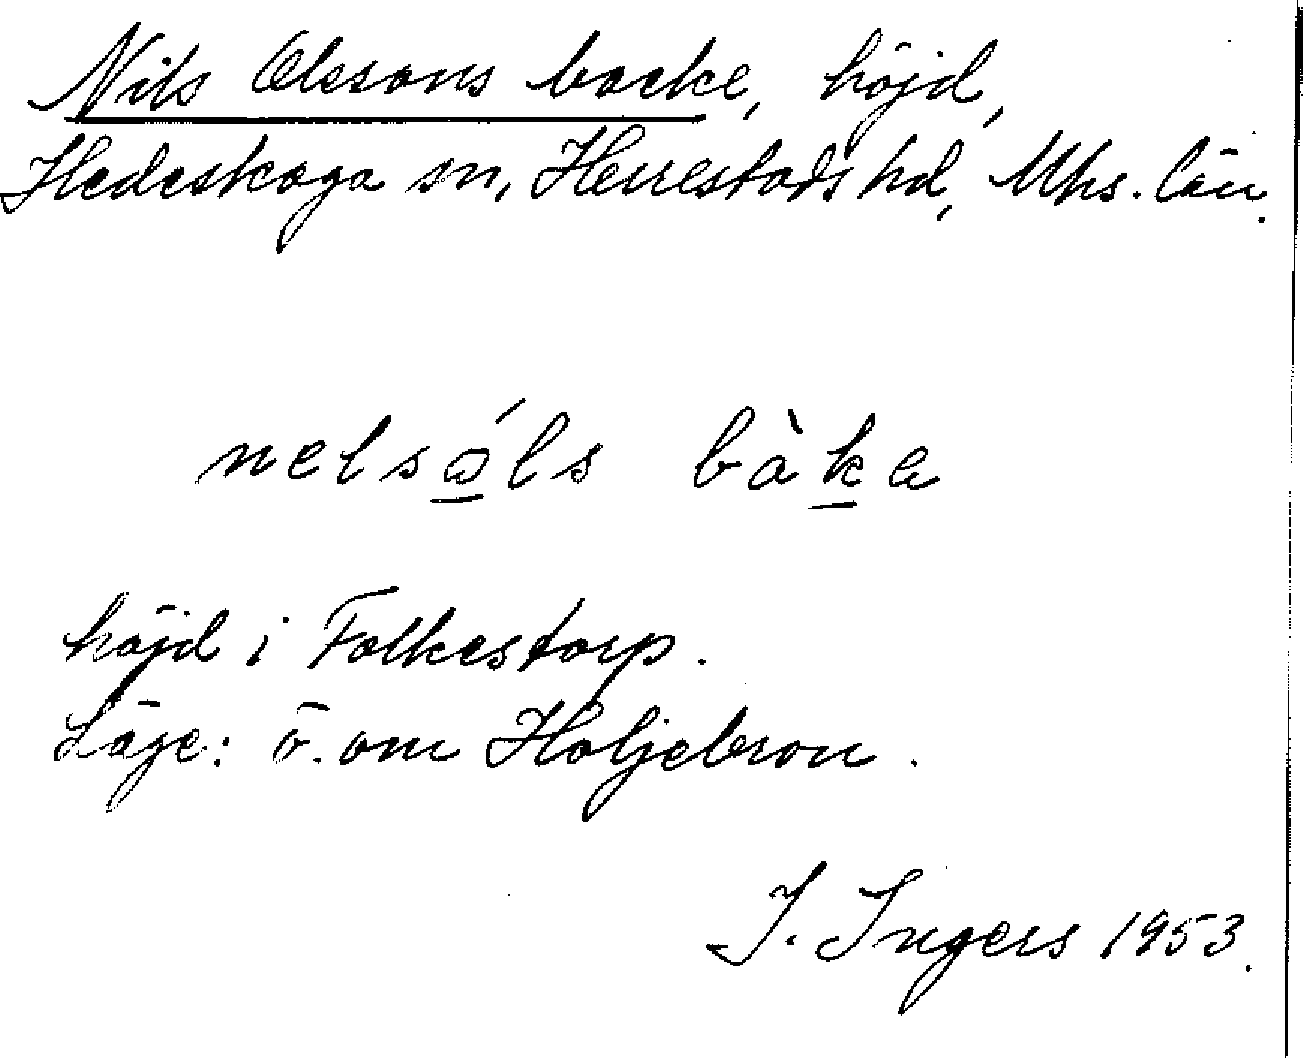 Nils Olssons backe, höjd,
Hedeskoga sn, Herrestads hd, Mhs. län.
nelsɔ́ls bàka
höjd i Folkestorp.
Läge: ö. om Holjebron.
I. Ingers 1953.